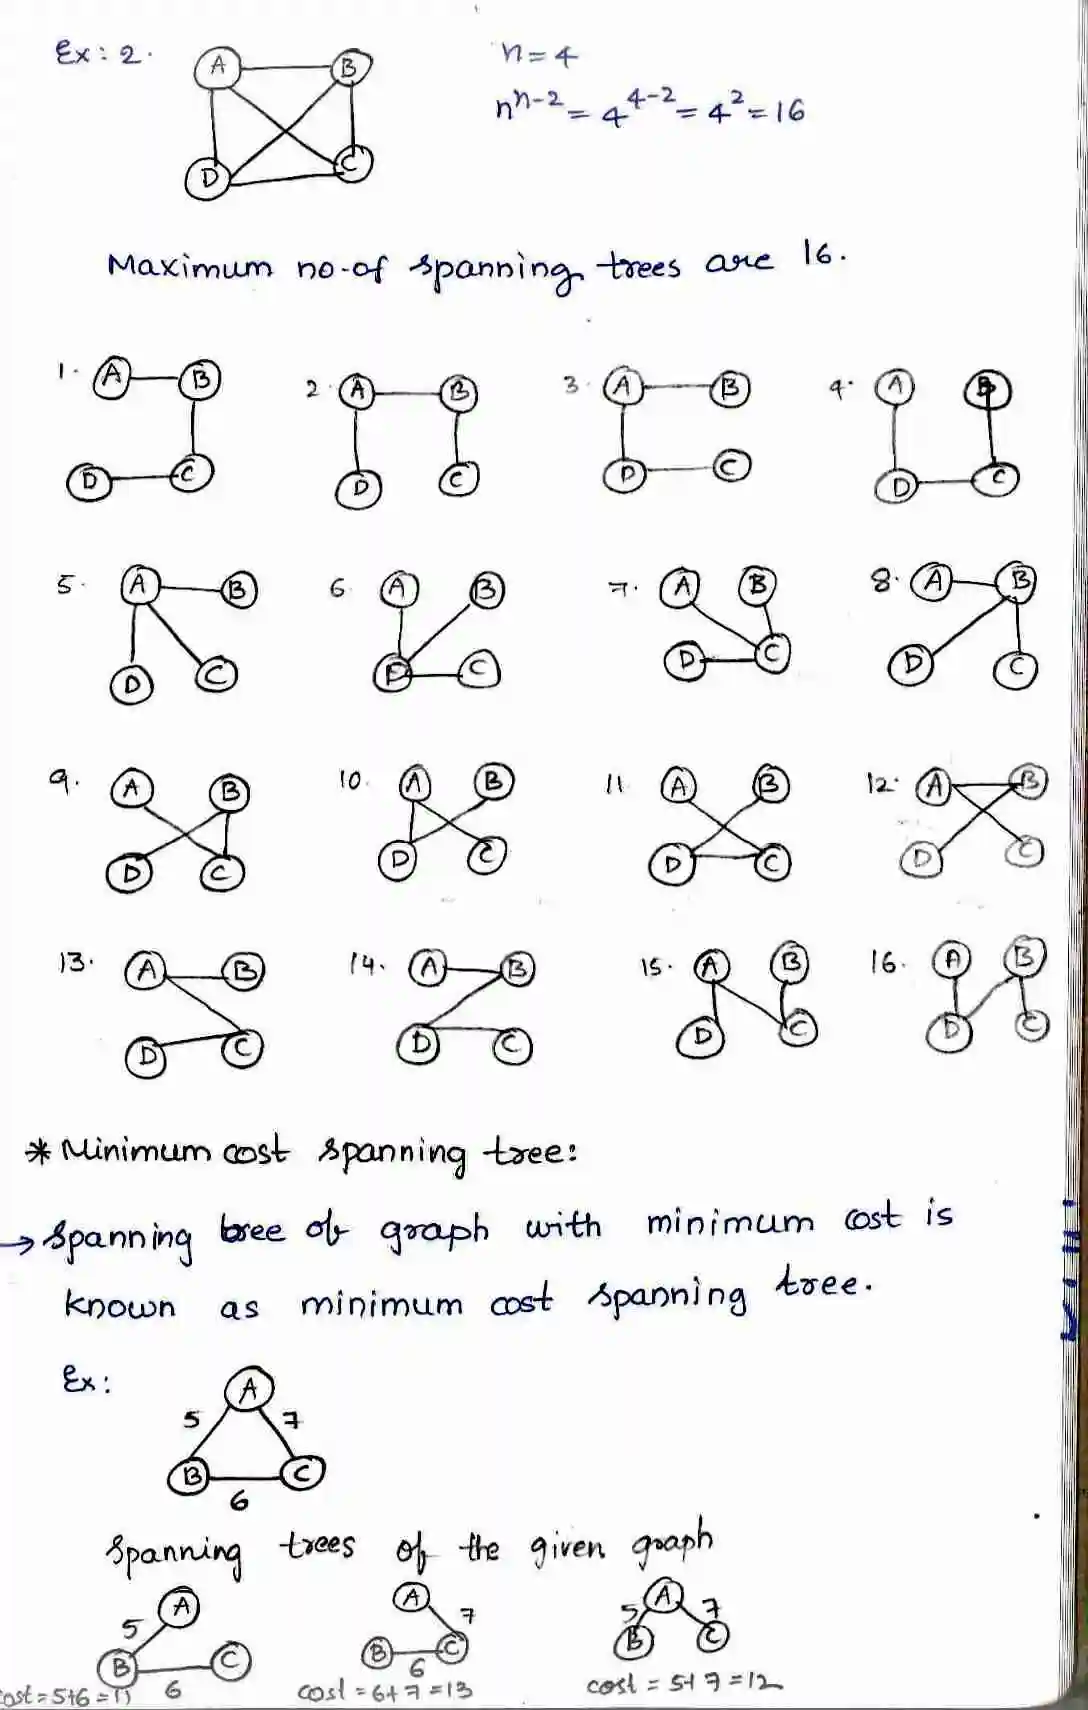 Ex: 2.
A B
D C
n = 4
n^{n-2} = 4^{4-2} = 4^2 = 16
Maximum no. of spanning trees are 16.
1. A B
D C
2. A B
D C
3. A B
D C
4. A B
D C
5. A B
D C
6. A B
C
7. A B
D C
8. A B
D C
9. A B
D C
10. A B
D C
11 A B
D C
12. A B
D C
13. A B
D C
14. A B
D C
15. A B
D C
16. A B
D C
* Minimum cost spanning tree:
→ Spanning tree of graph with minimum cost is
known as minimum cost spanning tree.
Ex:
A
5 7
B C
6
Spanning trees of the given graph
A
5
B C
6
cost = 5+6 = 11
A
7
B C
6
cost = 6+7 = 13
A
5 7
B C
cost = 5+7 = 12